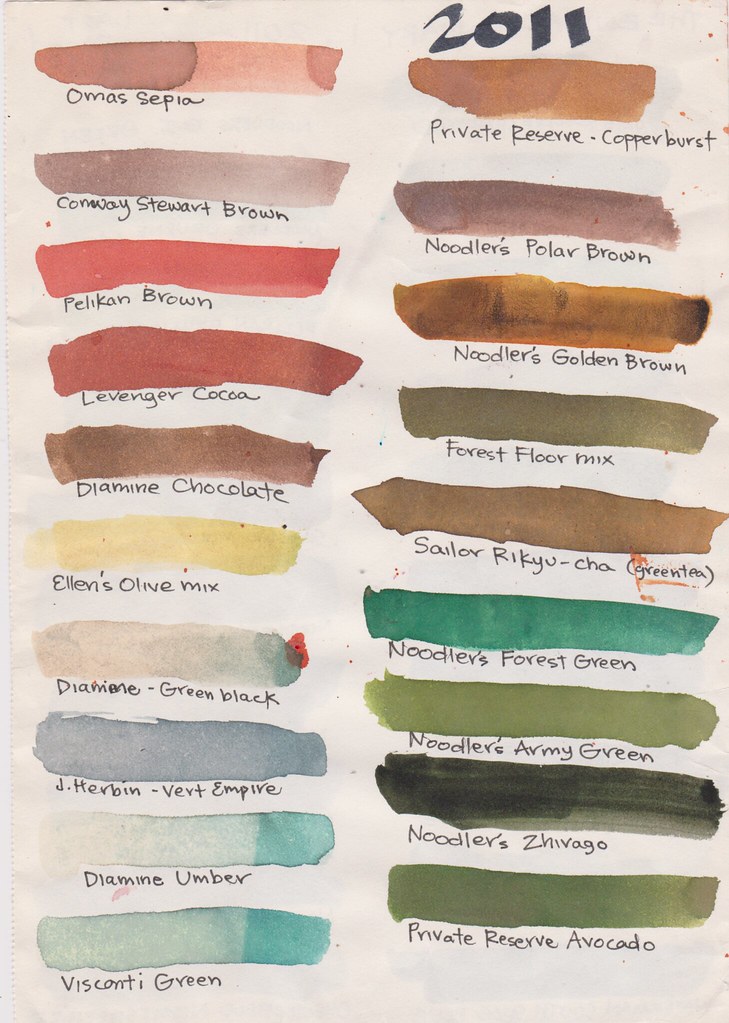 2011
Omas Sepia
Conway Stewart Brown
Pelikan Brown
Levenger Cocoa
Diamine Chocolate
Ellen's Olive mix
Diamine - Green black
J. Herbin - Vert Empire
Diamine Umber
Visconti Green
Private Reserve - Copperburst
Noodler's Polar Brown
Noodler's Golden Brown
Forest Floor mix
Sailor Rikyu-cha (greentea)
Noodler's Forest Green
Noodler's Army Green
Noodler's Zhivago
Private Reserve Avocado